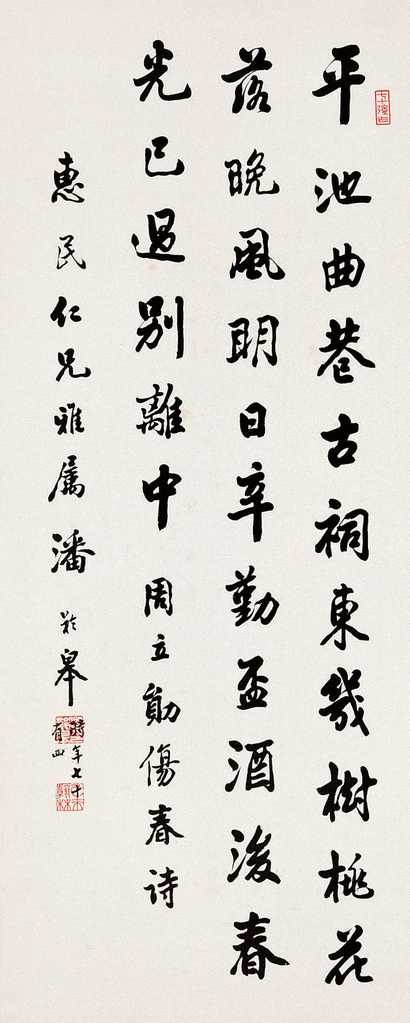 平池曲巷古祠東幾樹桃花
落晚風明日辛勤盃酒後春
光已過別離中 周立勛傷春詩
惠民仁兄雅屬潘齡皋
時年七十
有四